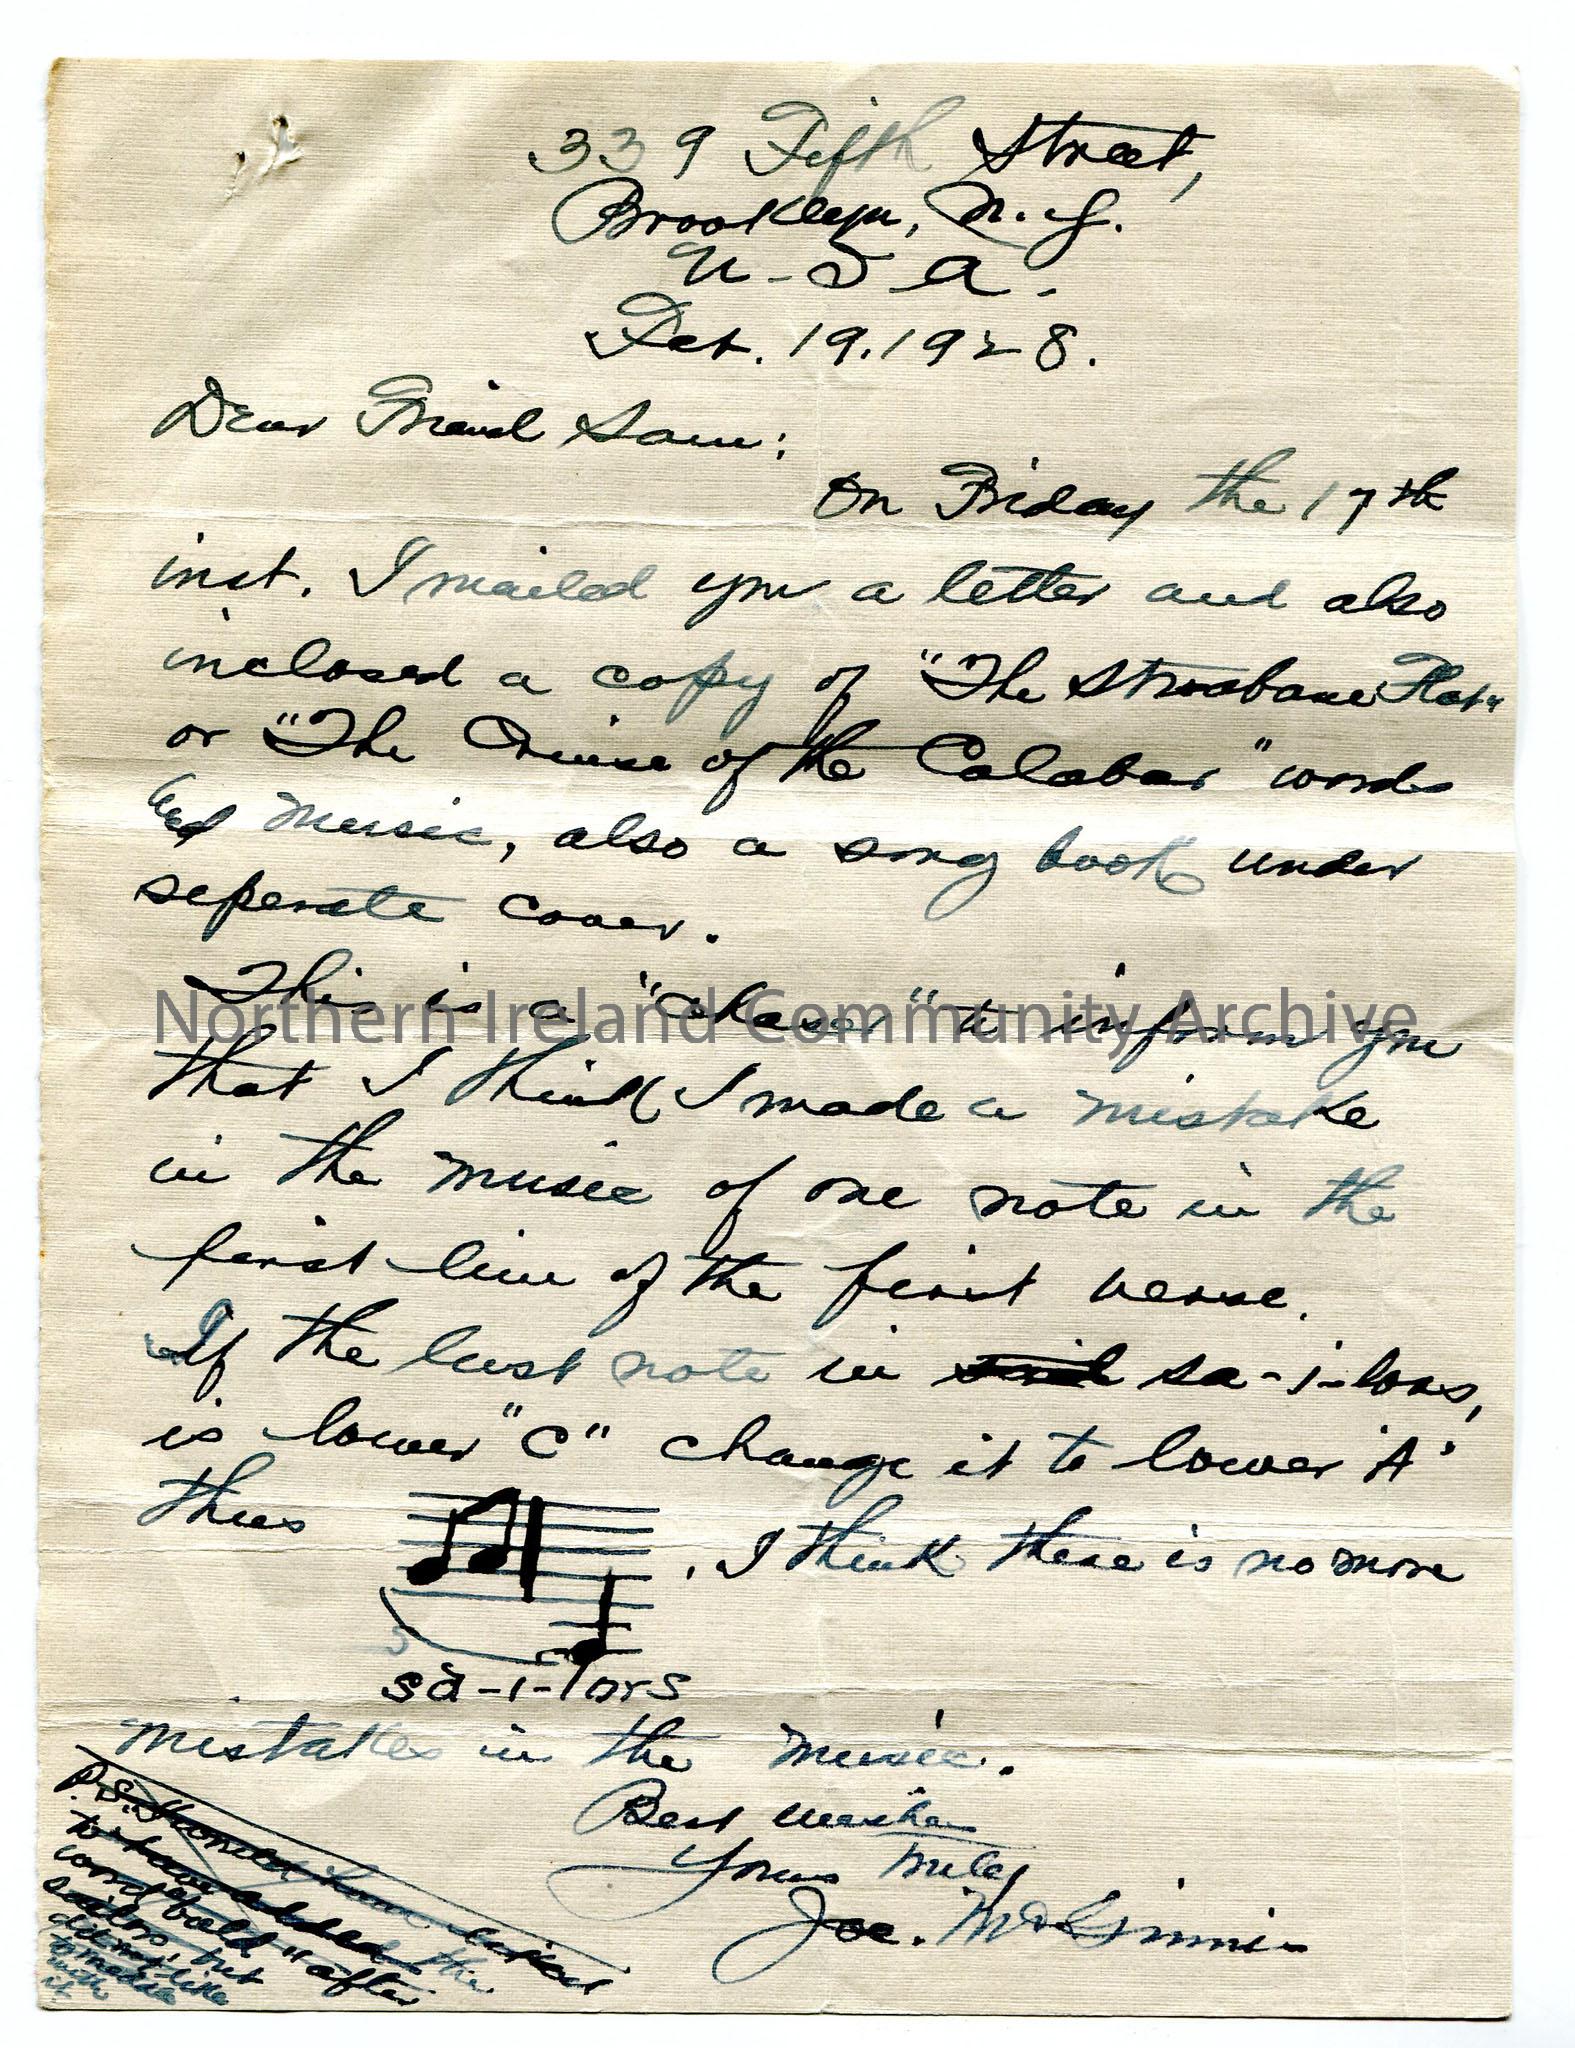 339 Fifth Street,
Brooklyn, N.Y.
U.S.A.
Oct. 19. 1928.
Dear Friend Sam:
On Friday the 17th
inst. I mailed you a letter and also
inclosed a copy of "The Strabane Flat"
or "The Cruise of the Calabar" words
and music, also a song book under
seperate cover.
This is a "chaser" to inform you
Northern Ireland Community Archive
that I think I made a mistake
in the music of one note in the
first line of the first verse.
If the last note in said sa-i-lors,
is lower "C" change it to lower "A"
thus . I think there is no more
sa-i-lors
mistakes in the music.
Best wishes
Yours truly
Joe. McGinnis
P.S.
to have added the
word "bold" after
sailors, but
did not like
to meddle
with
it